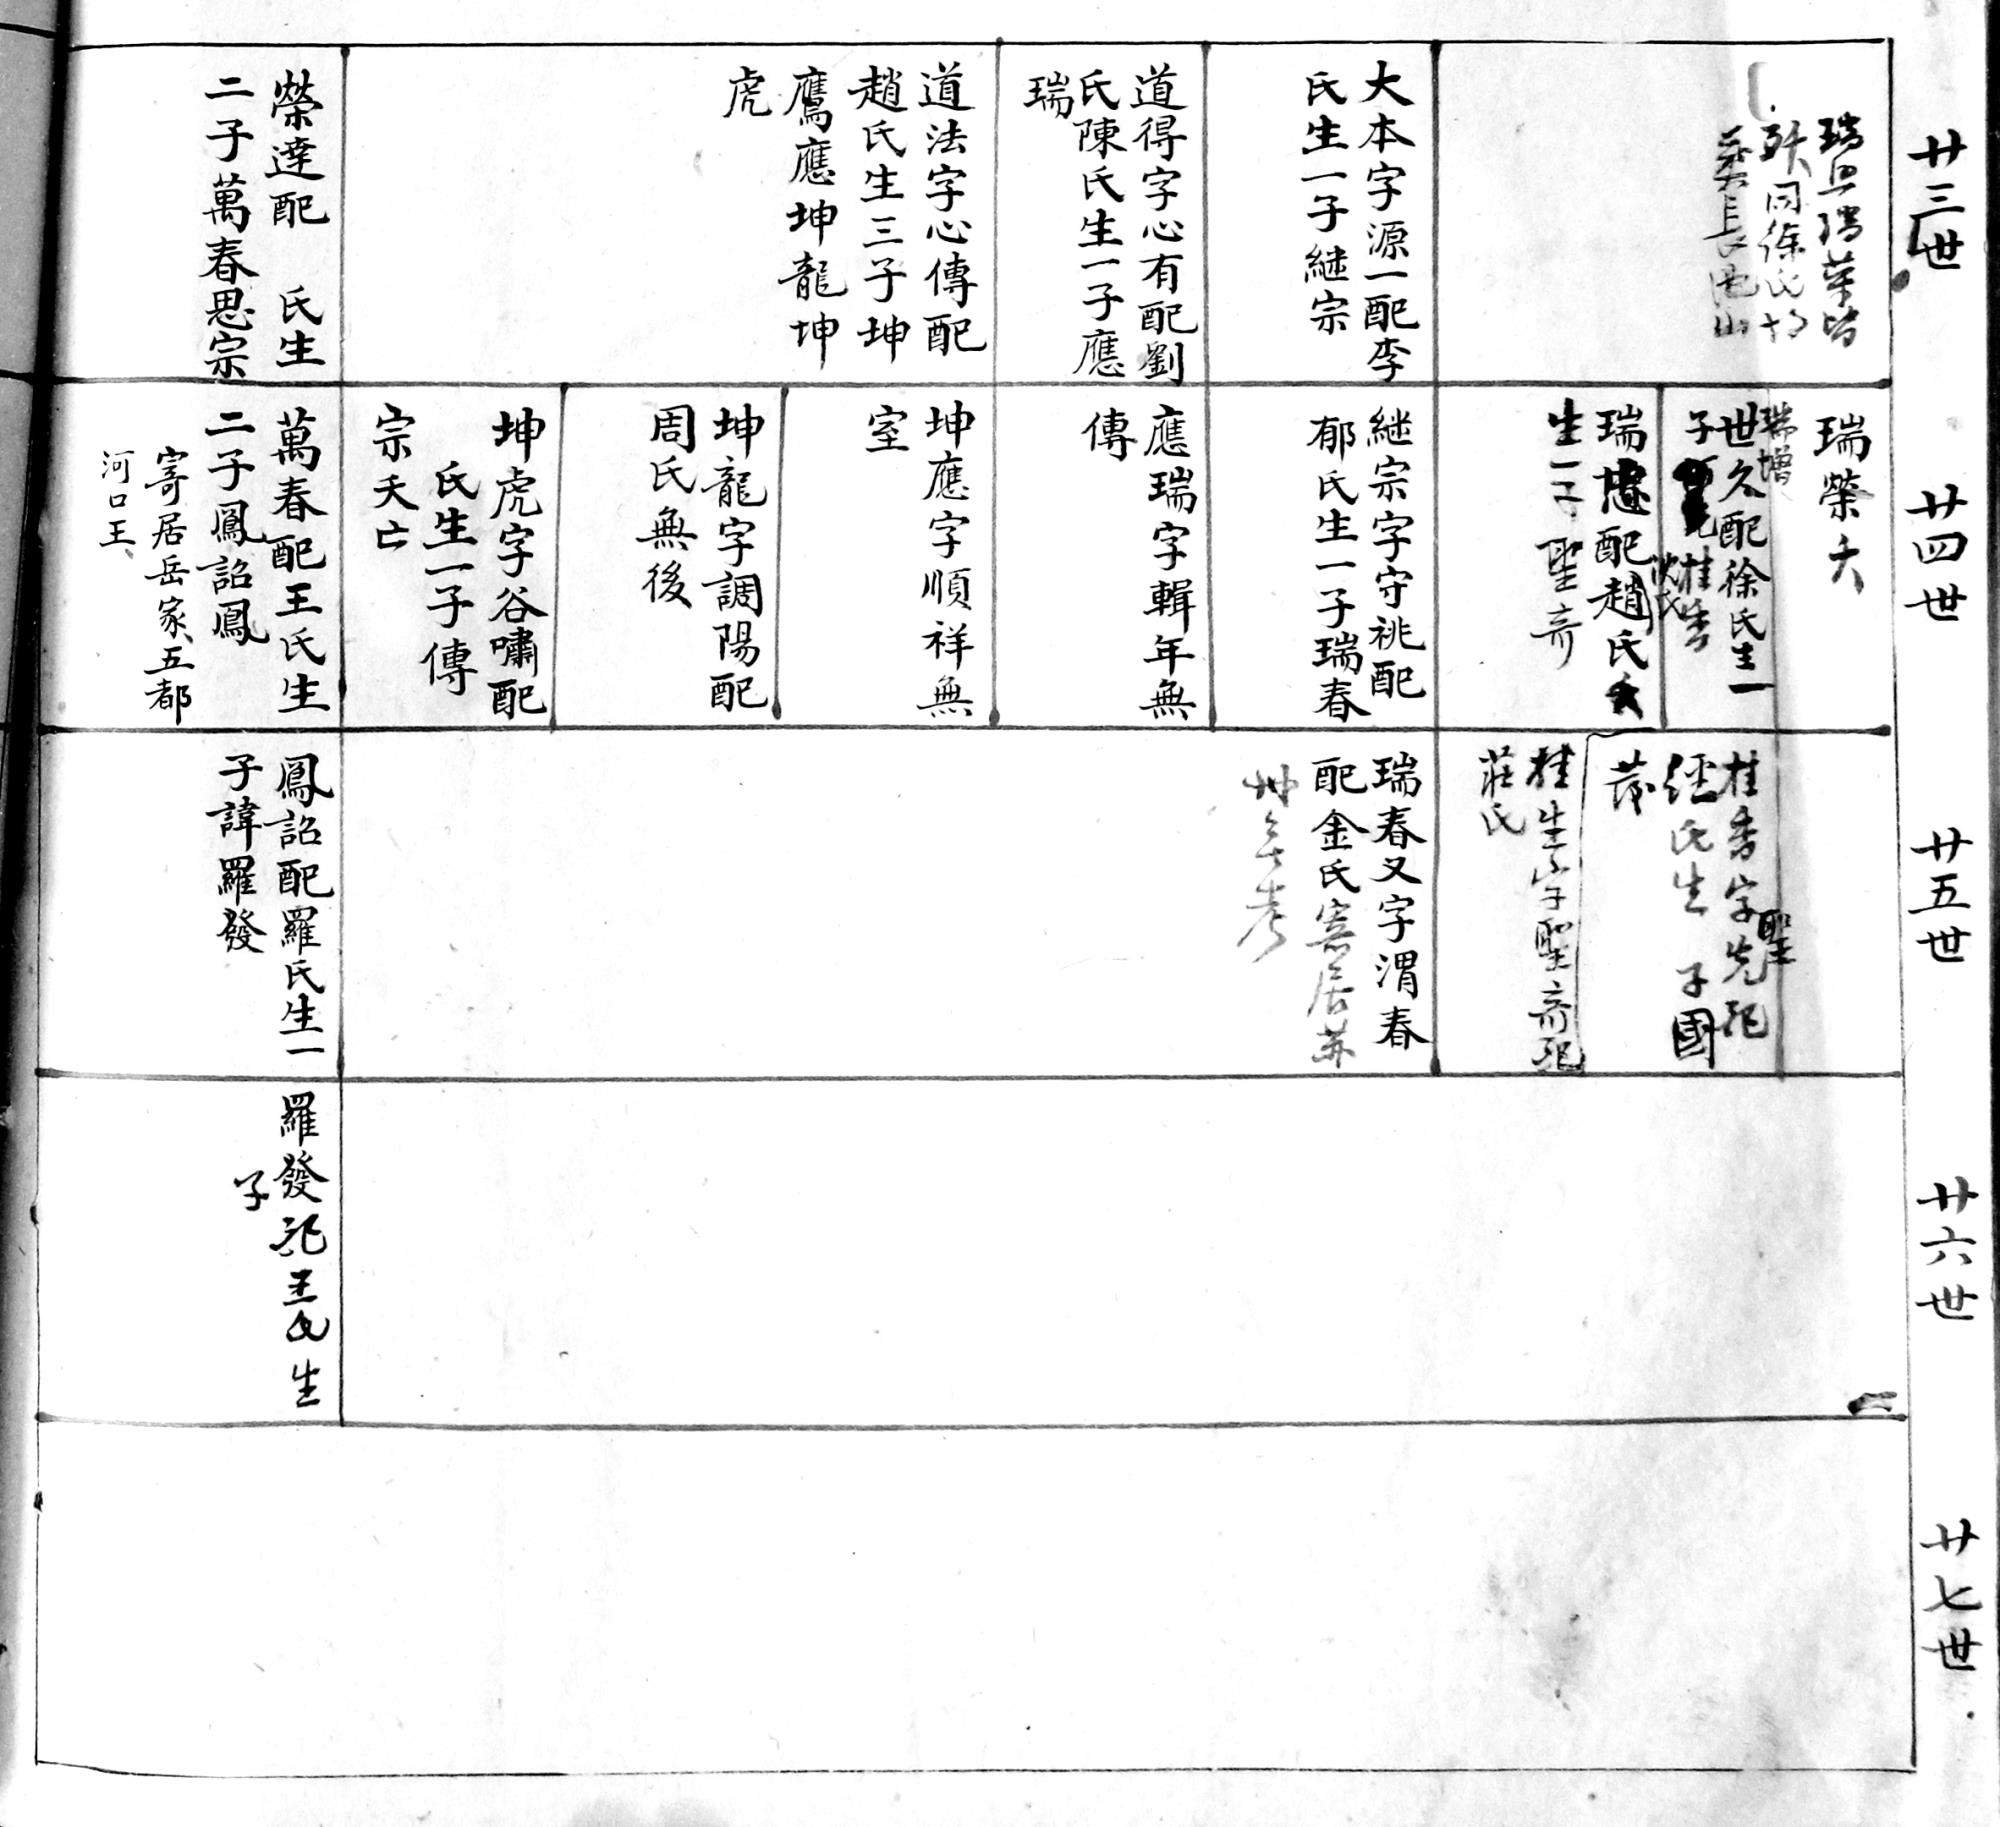 廿三世
大本字源一配李
氏生一子継宗
道得字心有配劉
氏陳氏生一子應
瑞
道法字心傳配
趙氏生三子坤
鷹應坤龍坤
虎
榮達配　氏生
二子萬春思宗
廿四世
瑞榮夭
瑞增
世久配徐氏生一
子
桂香
瑞配趙氏
生一子聖齋
継宗字守祧配
郁氏生一子瑞春
應瑞字輯年無
傳
坤應字順祥無
室
坤龍字調陽配
周氏無後
坤虎字谷嘯配
氏生一子傳
宗夭亡
萬春配王氏生
二子鳳詔鳳
寄居岳家、五都
河口王、
廿五世
桂香字聖先配
氏生　子國
茂
桂生字聖齋配
莊氏
瑞春又字渭春
配金氏寄居蘇
州
鳳詔配羅氏生一
子諱羅發
廿六世
羅發配王氏生
子
廿七世